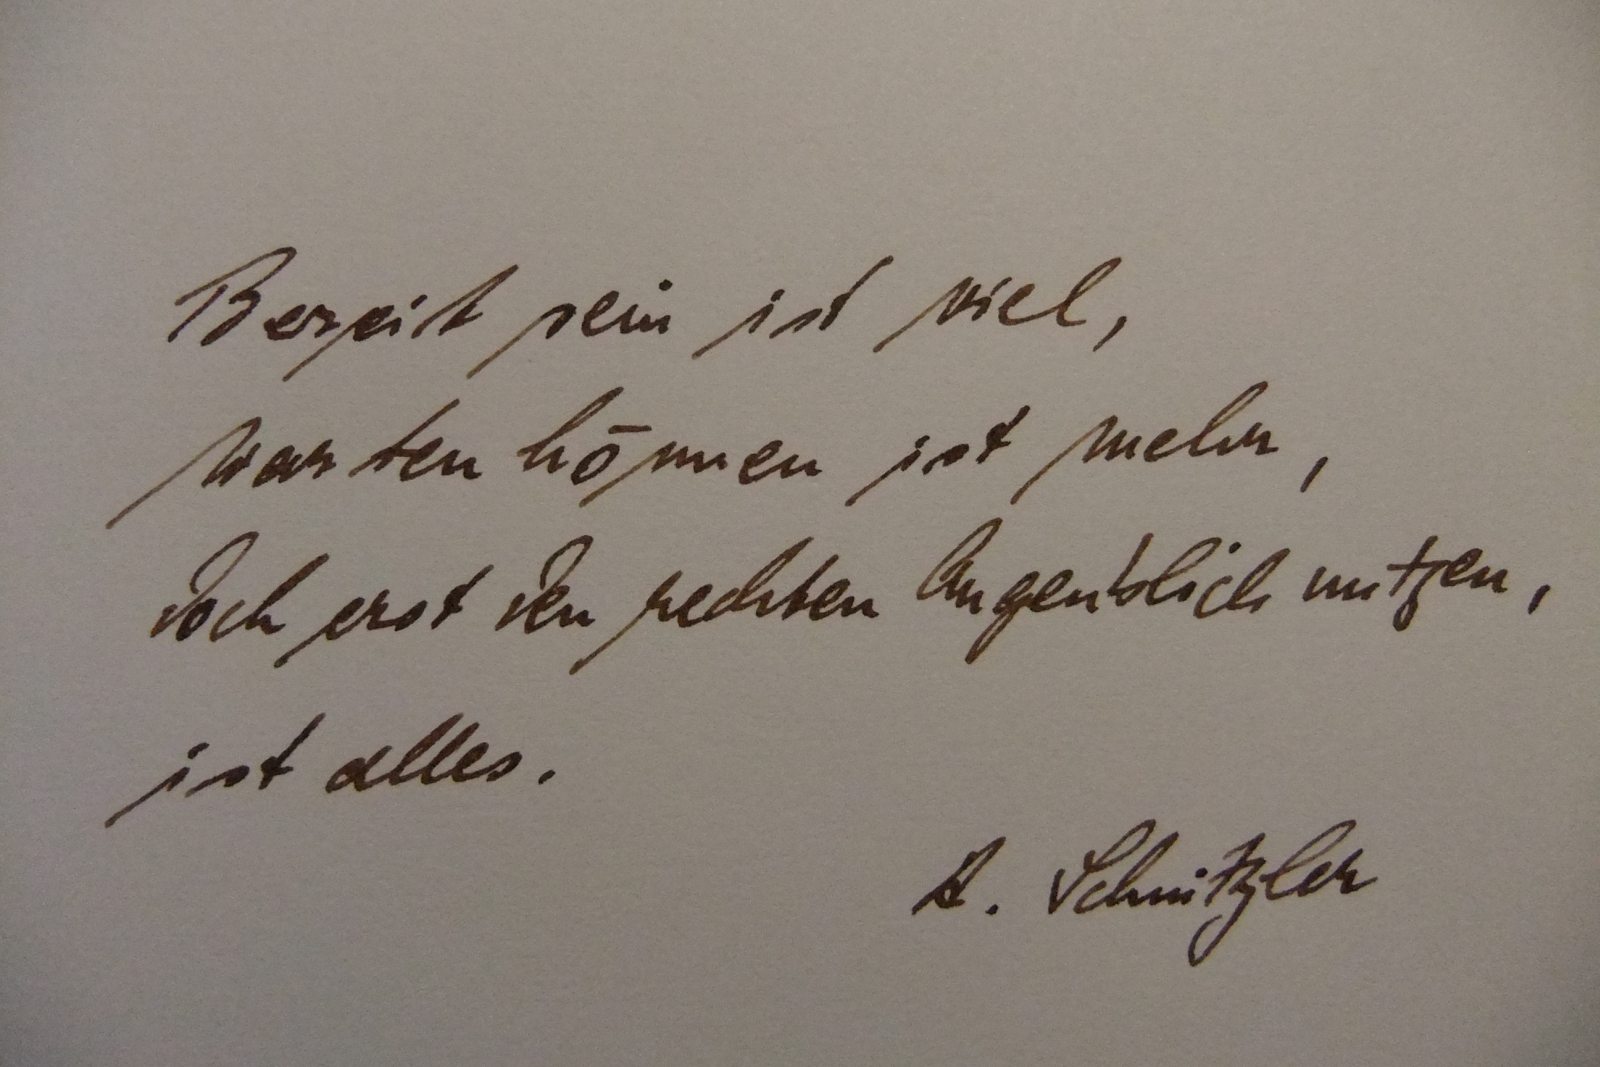 Bereit sein ist viel,
warten können ist mehr,
doch erst den rechten Augenblick nutzen,
ist alles.
A. Schnitzler